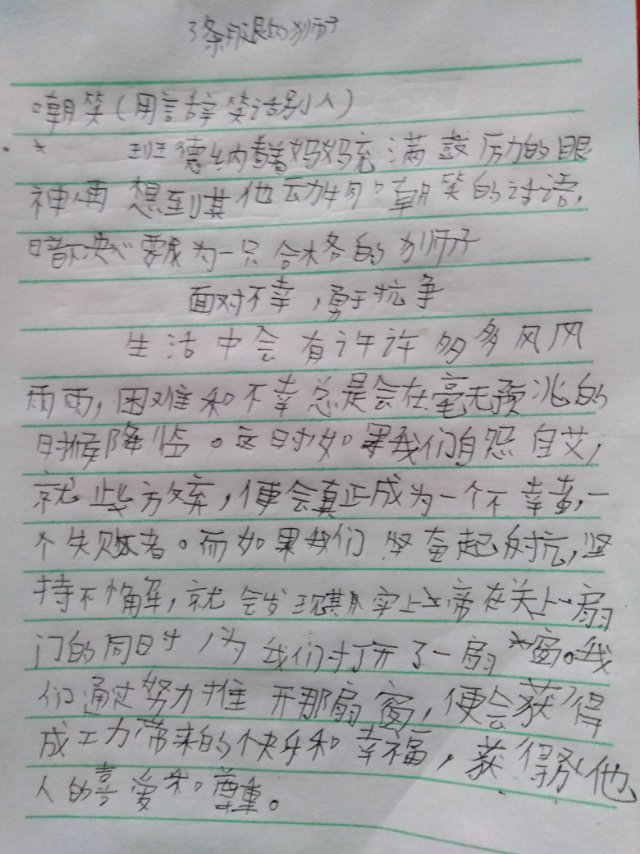 3条腿的狮子
嘲笑(用言辞笑话别人)
班德纳看着妈妈充满鼓厉的眼
神再想到其他动物嘲笑的话语,
暗下决心要成为一只合格的狮子
面对不幸,勇于抗争
生活中会有许许多多风风
雨雨,困难和不幸总是会在毫无预兆的
时候降临。这时如果我们自怨自艾,
就此放弃,便会真正成为一个不幸者,一
个失败者。而如果我们奋起反抗,坚
持不懈,就会发现其实上帝在关上一扇
门的同时,为我们打开了一扇窗。我
们通过努力推开那扇窗,便会获得
成功带来的快乐和幸福,获得别他
人的喜爱和尊重。